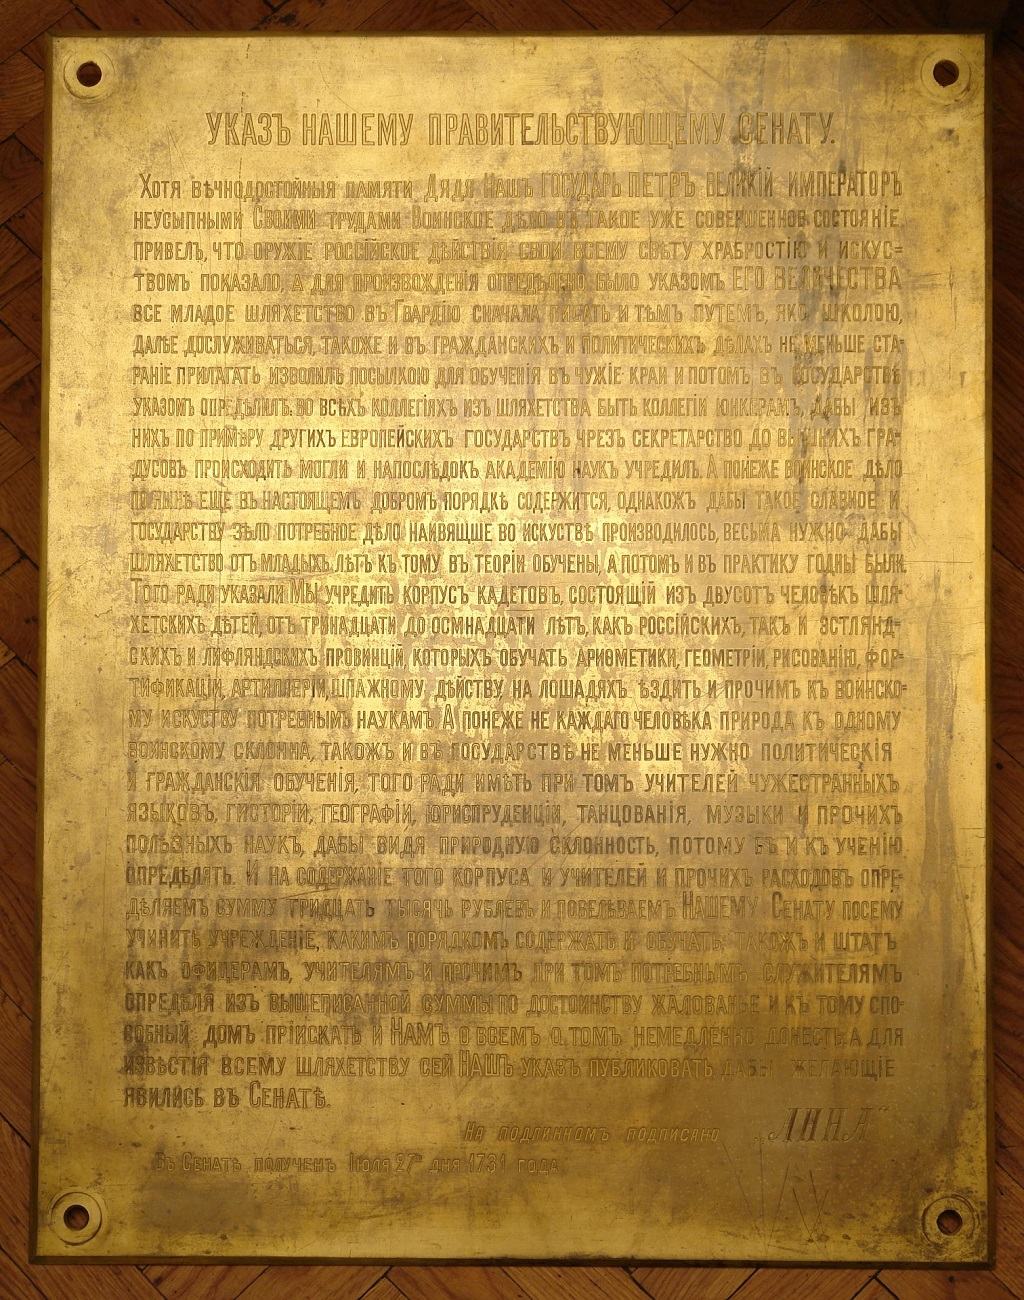 УКАЗЪ НАШЕМУ ПРАВИТЕЛЬСТВУЮЩЕМУ СЕНАТУ.
ХОТЯ ВѢЧНОДОСТОЙНЫЯ ПАМЯТИ ДЯДЯ НАШЪ ГОСУДАРЬ ПЕТРЪ ВЕЛИКІЙ ИМПЕРАТОРЪ
НЕУСЫПНЫМИ СВОИМИ ТРУДАМИ ВОИНСКОЕ ДѢЛО ВЪ ТАКОЕ УЖЕ СОВЕРШЕННОЕ СОСТОЯНІЕ
ПРИВЕЛЪ, ЧТО ОРУЖІЕ РОССІЙСКОЕ ДѢЙСТВІЯ СВОИ ВСЕМУ СВѢТУ ХРАБРОСТІЮ И ИСКУС=
ТВОМЪ ПОКАЗАЛО, А ДЛЯ ПРОИЗВОЖДЕНІЯ ОПРЕДѢЛЕНО БЫЛО УКАЗОМЪ ЕГО ВЕЛИЧЕСТВА
ВСЕ МЛАДОЕ ШЛЯХЕТСТВО ВЪ ГВАРДІЮ СНАЧАЛА ПИСАТЬ И ТѢМЪ ПУТЕМЪ, ЯКО ШКОЛОЮ,
ДАЛѢЕ ДОСЛУЖИВАТЬСЯ, ТАКОЖЕ И ВЪ ГРАЖДАНСКИХЪ И ПОЛИТИЧЕСКИХЪ ДѢЛАХЪ НЕ МЕНЬШЕ СТА-
РАНІЕ ПРИЛАГАТЬ ИЗВОЛИЛЪ ПОСЫЛКОЮ ДЛЯ ОБУЧЕНІЯ ВЪ ЧУЖІЕ КРАИ И ПОТОМЪ ВЪ ГОСУДАРСТВѢ
УКАЗОМЪ ОПРЕДѢЛИЛЪ: ВО ВСѢХЪ КОЛЛЕГІЯХЪ ИЗЪ ШЛЯХЕТСТВА БЫТЬ КОЛЛЕГІИ ЮНКЕРАМЪ, ДАБЫ ИЗЪ
НИХЪ ПО ПРИМѢРУ ДРУГИХЪ ЕВРОПЕЙСКИХЪ ГОСУДАРСТВЪ ЧРЕЗЪ СЕКРЕТАРСТВО ДО ВЫШНИХЪ ГРА-
ДУСОВЪ ПРОИСХОДИТЬ МОГЛИ И НАПОСЛѢДОКЪ АКАДЕМІЮ НАУКЪ УЧРЕДИЛЪ. А ПОНЕЖЕ ВОИНСКОЕ ДѢЛО
ПОНЫНѢ ЕЩЕ ВЪ НАСТОЯЩЕМЪ ДОБРОМЪ ПОРЯДКѢ СОДЕРЖИТСЯ, ОДНАКОЖЪ ДАБЫ ТАКОЕ СЛАВНОЕ И
ГОСУДАРСТВУ ЗѢЛО ПОТРЕБНОЕ ДѢЛО НАИВЯЩШЕ ВО ИСКУСТВѢ ПРОИЗВОДИЛОСЬ, ВЕСЬМА НУЖНО ДАБЫ
ШЛЯХЕТСТВО ОТЪ МЛАДЫХЪ ЛѢТЪ КЪ ТОМУ ВЪ ТЕОРІИ ОБУЧЕНЫ, А ПОТОМЪ И ВЪ ПРАКТИКУ ГОДНЫ БЫЛИ.
ТОГО РАДИ УКАЗАЛИ МЫ УЧРЕДИТЬ КОРПУСЪ КАДЕТОВЪ, СОСТОЯЩІЙ ИЗЪ ДВУСОТЪ ЧЕЛОВѢКЪ ШЛЯ-
ХЕТСКИХЪ ДѢТЕЙ, ОТЪ ТРИНАДЦАТИ ДО ОСМНАДЦАТИ ЛѢТЪ, КАКЪ РОССІЙСКИХЪ, ТАКЪ И ЭСТЛЯНД-
СКИХЪ И ЛИФЛЯНДСКИХЪ ПРОВИНЦІЙ, КОТОРЫХЪ ОБУЧАТЬ АРИѲМЕТИКИ, ГЕОМЕТРІИ, РИСОВАНІЮ, ФОР-
ТИФИКАЦІИ, АРТИЛЛЕРІИ, ШПАЖНОМУ ДѢЙСТВУ, НА ЛОШАДЯХЪ ѢЗДИТЬ И ПРОЧИМЪ КЪ ВОИНСКО-
МУ ИСКУСТВУ ПОТРЕБНЫМЪ НАУКАМЪ А ПОНЕЖЕ НЕ КАЖДАГО ЧЕЛОВѢКА ПРИРОДА КЪ ОДНОМУ
ВОИНСКОМУ СКЛОННА, ТАКОЖЪ И ВЪ ГОСУДАРСТВѢ НЕ МЕНЬШЕ НУЖНО ПОЛИТИЧЕСКІЯ
И ГРАЖДАНСКІЯ ОБУЧЕНІЯ, ТОГО РАДИ ИМѢТЬ ПРИ ТОМЪ УЧИТЕЛЕЙ ЧУЖЕСТРАННЫХЪ
ЯЗЫКОВЪ, ГИСТОРІИ, ГЕОГРАФІИ, ЮРИСПРУДЕНЦІИ, ТАНЦОВАНІЯ, МУЗЫКИ И ПРОЧИХЪ
ПОЛЕЗНЫХЪ НАУКЪ, ДАБЫ ВИДЯ ПРИРОДНУЮ СКЛОННОСТЬ, ПОТОМУ БЪ И КЪ УЧЕНІЮ
ОПРЕДѢЛЯТЬ. И НА СОДЕРЖАНІЕ ТОГО КОРПУСА И УЧИТЕЛЕЙ И ПРОЧИХЪ РАСХОДОВЪ ОПРЕ-
ДѢЛЯЕМЪ СУММУ ТРИДЦАТЬ ТЫСЯЧЬ РУБЛЕВЪ И ПОВЕЛѢВАЕМЪ НАШЕМУ СЕНАТУ ПОСЕМУ
УЧИНИТЬ УЧРЕЖДЕНІЕ, КАКИМЪ ПОРЯДКОМЪ СОДЕРЖАТЬ И ОБУЧАТЬ: ТАКОЖЪ И ШТАТЪ
КАКЪ ОФИЦЕРАМЪ, УЧИТЕЛЯМЪ И ПРОЧИМЪ ПРИ ТОМЪ ПОТРЕБНЫМЪ СЛУЖИТЕЛЯМЪ
ОПРЕДЕЛЯ ИЗЪ ВЫШЕПИСАННОЙ СУММЫ ПО ДОСТОИНСТВУ ЖАЛОВАНЬЕ И КЪ ТОМУ СПО-
СОБНЫЙ ДОМЪ ПРІИСКАТЬ И НАМЪ О ВСЕМЪ О ТОМЪ НЕМЕДЛЕННО ДОНЕСТЬ. А ДЛЯ
ИЗВѢСТІЯ ВСЕМУ ШЛЯХЕТСТВУ СЕЙ НАШЪ УКАЗЪ ПУБЛИКОВАТЬ ДАБЫ ЖЕЛАЮЩІЕ
ЯВИЛИСЬ ВЪ СЕНАТѢ.
НА ПОДЛИННОМЪ ПОДПИСАНО „АННА“
ВЪ СЕНАТѢ ПОЛУЧЕНЪ ІЮЛЯ 27ГО ДНЯ 1731 ГОДА